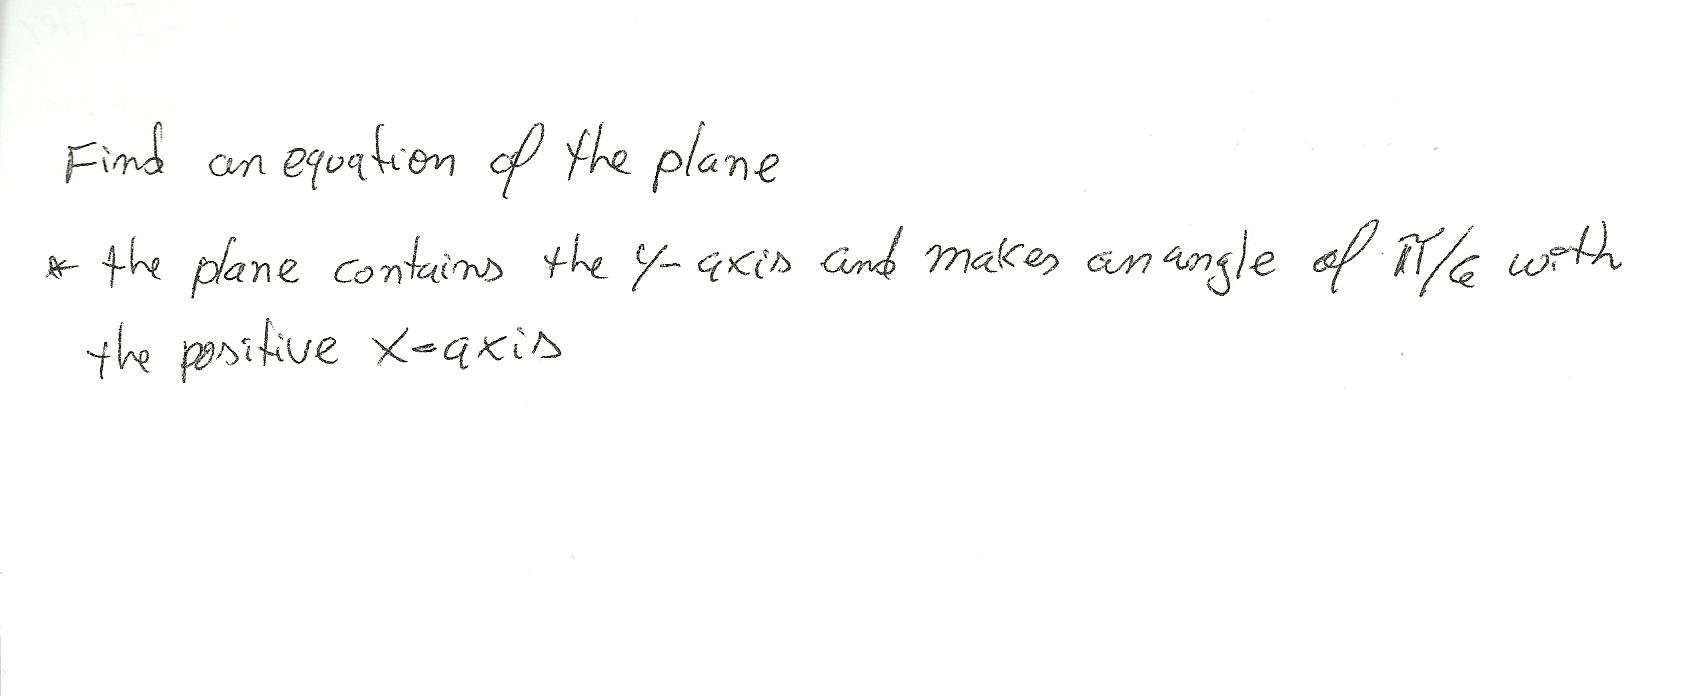 Find an equation of the plane
* the plane contains the y-axis and makes an angle of π/6 with
the positive x-axis